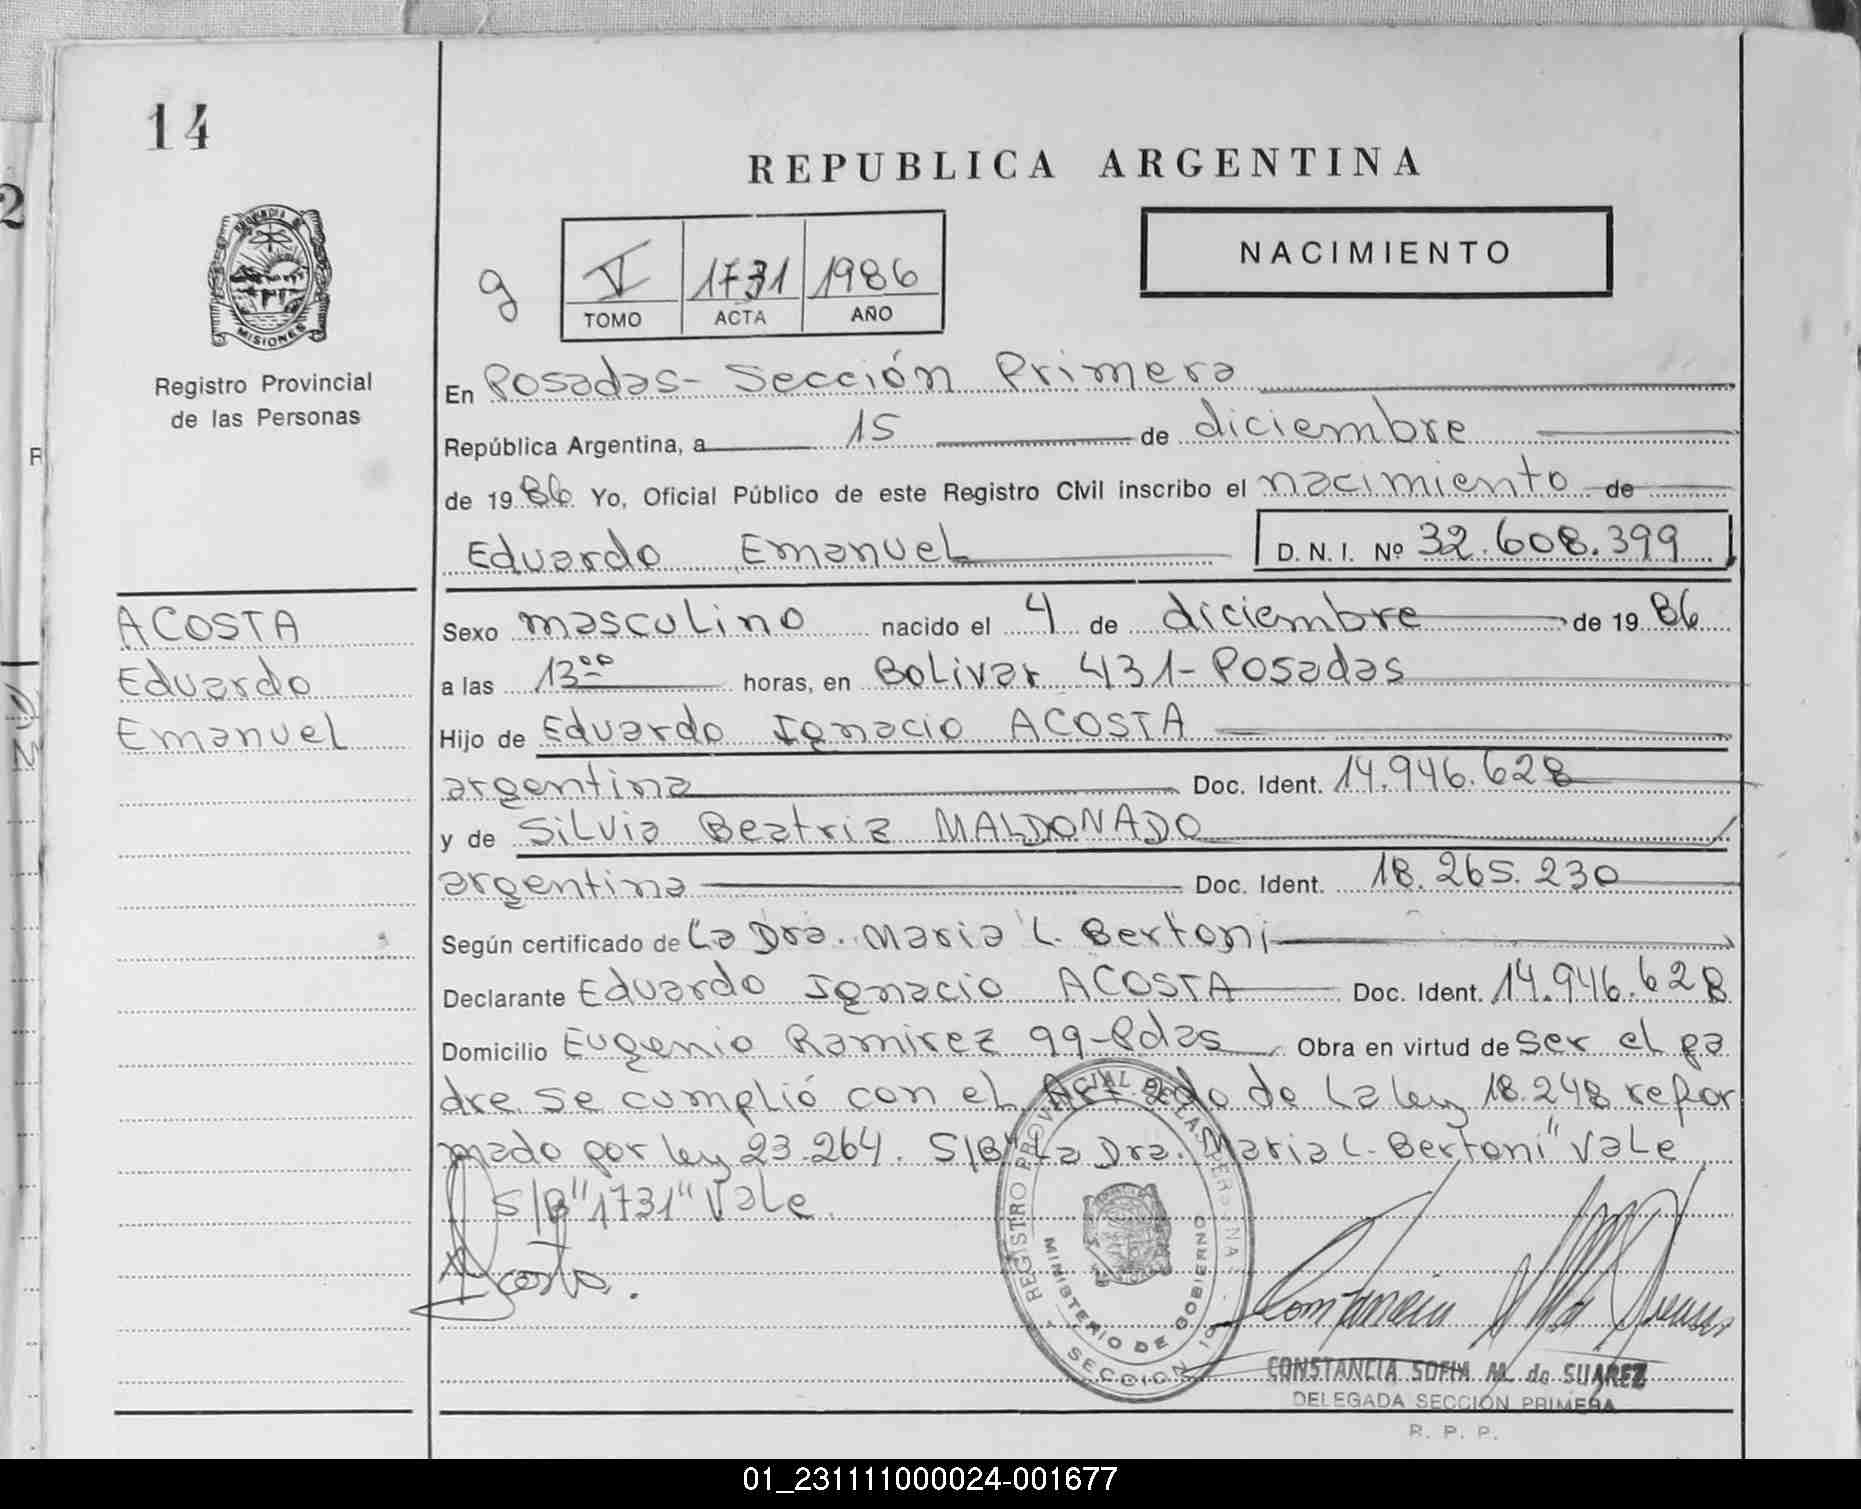 14
REPUBLICA ARGENTINA
NACIMIENTO
PROVINCIA DE
MISIONES
Registro Provincial
de las Personas
g
V 1731 1986
TOMO ACTA AÑO
En Posadas - Sección Primera
República Argentina, a 15 de diciembre
de 1986 Yo, Oficial Público de este Registro Civil inscribo el nacimiento de
Eduardo Emanuel D. N. I. Nº 32.608.399
ACOSTA
Eduardo
Emanuel
Sexo masculino nacido el 4 de diciembre de 1986
a las 13 00 horas, en Bolivar 431 - Posadas
Hijo de Eduardo Ignacio ACOSTA
argentina Doc. Ident. 14.946.628
y de Silvia Beatriz MALDONADO
argentina Doc. Ident. 18.265.230
Según certificado de La Dra. Maria L. Bertoni
Declarante Eduardo Ignacio ACOSTA Doc. Ident. 14.946.628
Domicilio Eugenio Ramirez 99 - Pdas Obra en virtud de ser el pa
dre se cumplió con el Art. 2do de La ley 18.248 refor
mado por ley 23.264. S/B "La Dra. Maria L. Bertoni" Vale
S/B "1731" Vale
Acosta.
REGISTRO PROVINCIAL DE LAS PERSONAS
MINISTERIO DE GOBIERNO
SECCION 1º
CONSTANCIA SOFIA M. de SUAREZ
DELEGADA SECCION PRIMERA
R. P. P.
01_231111000024-001677